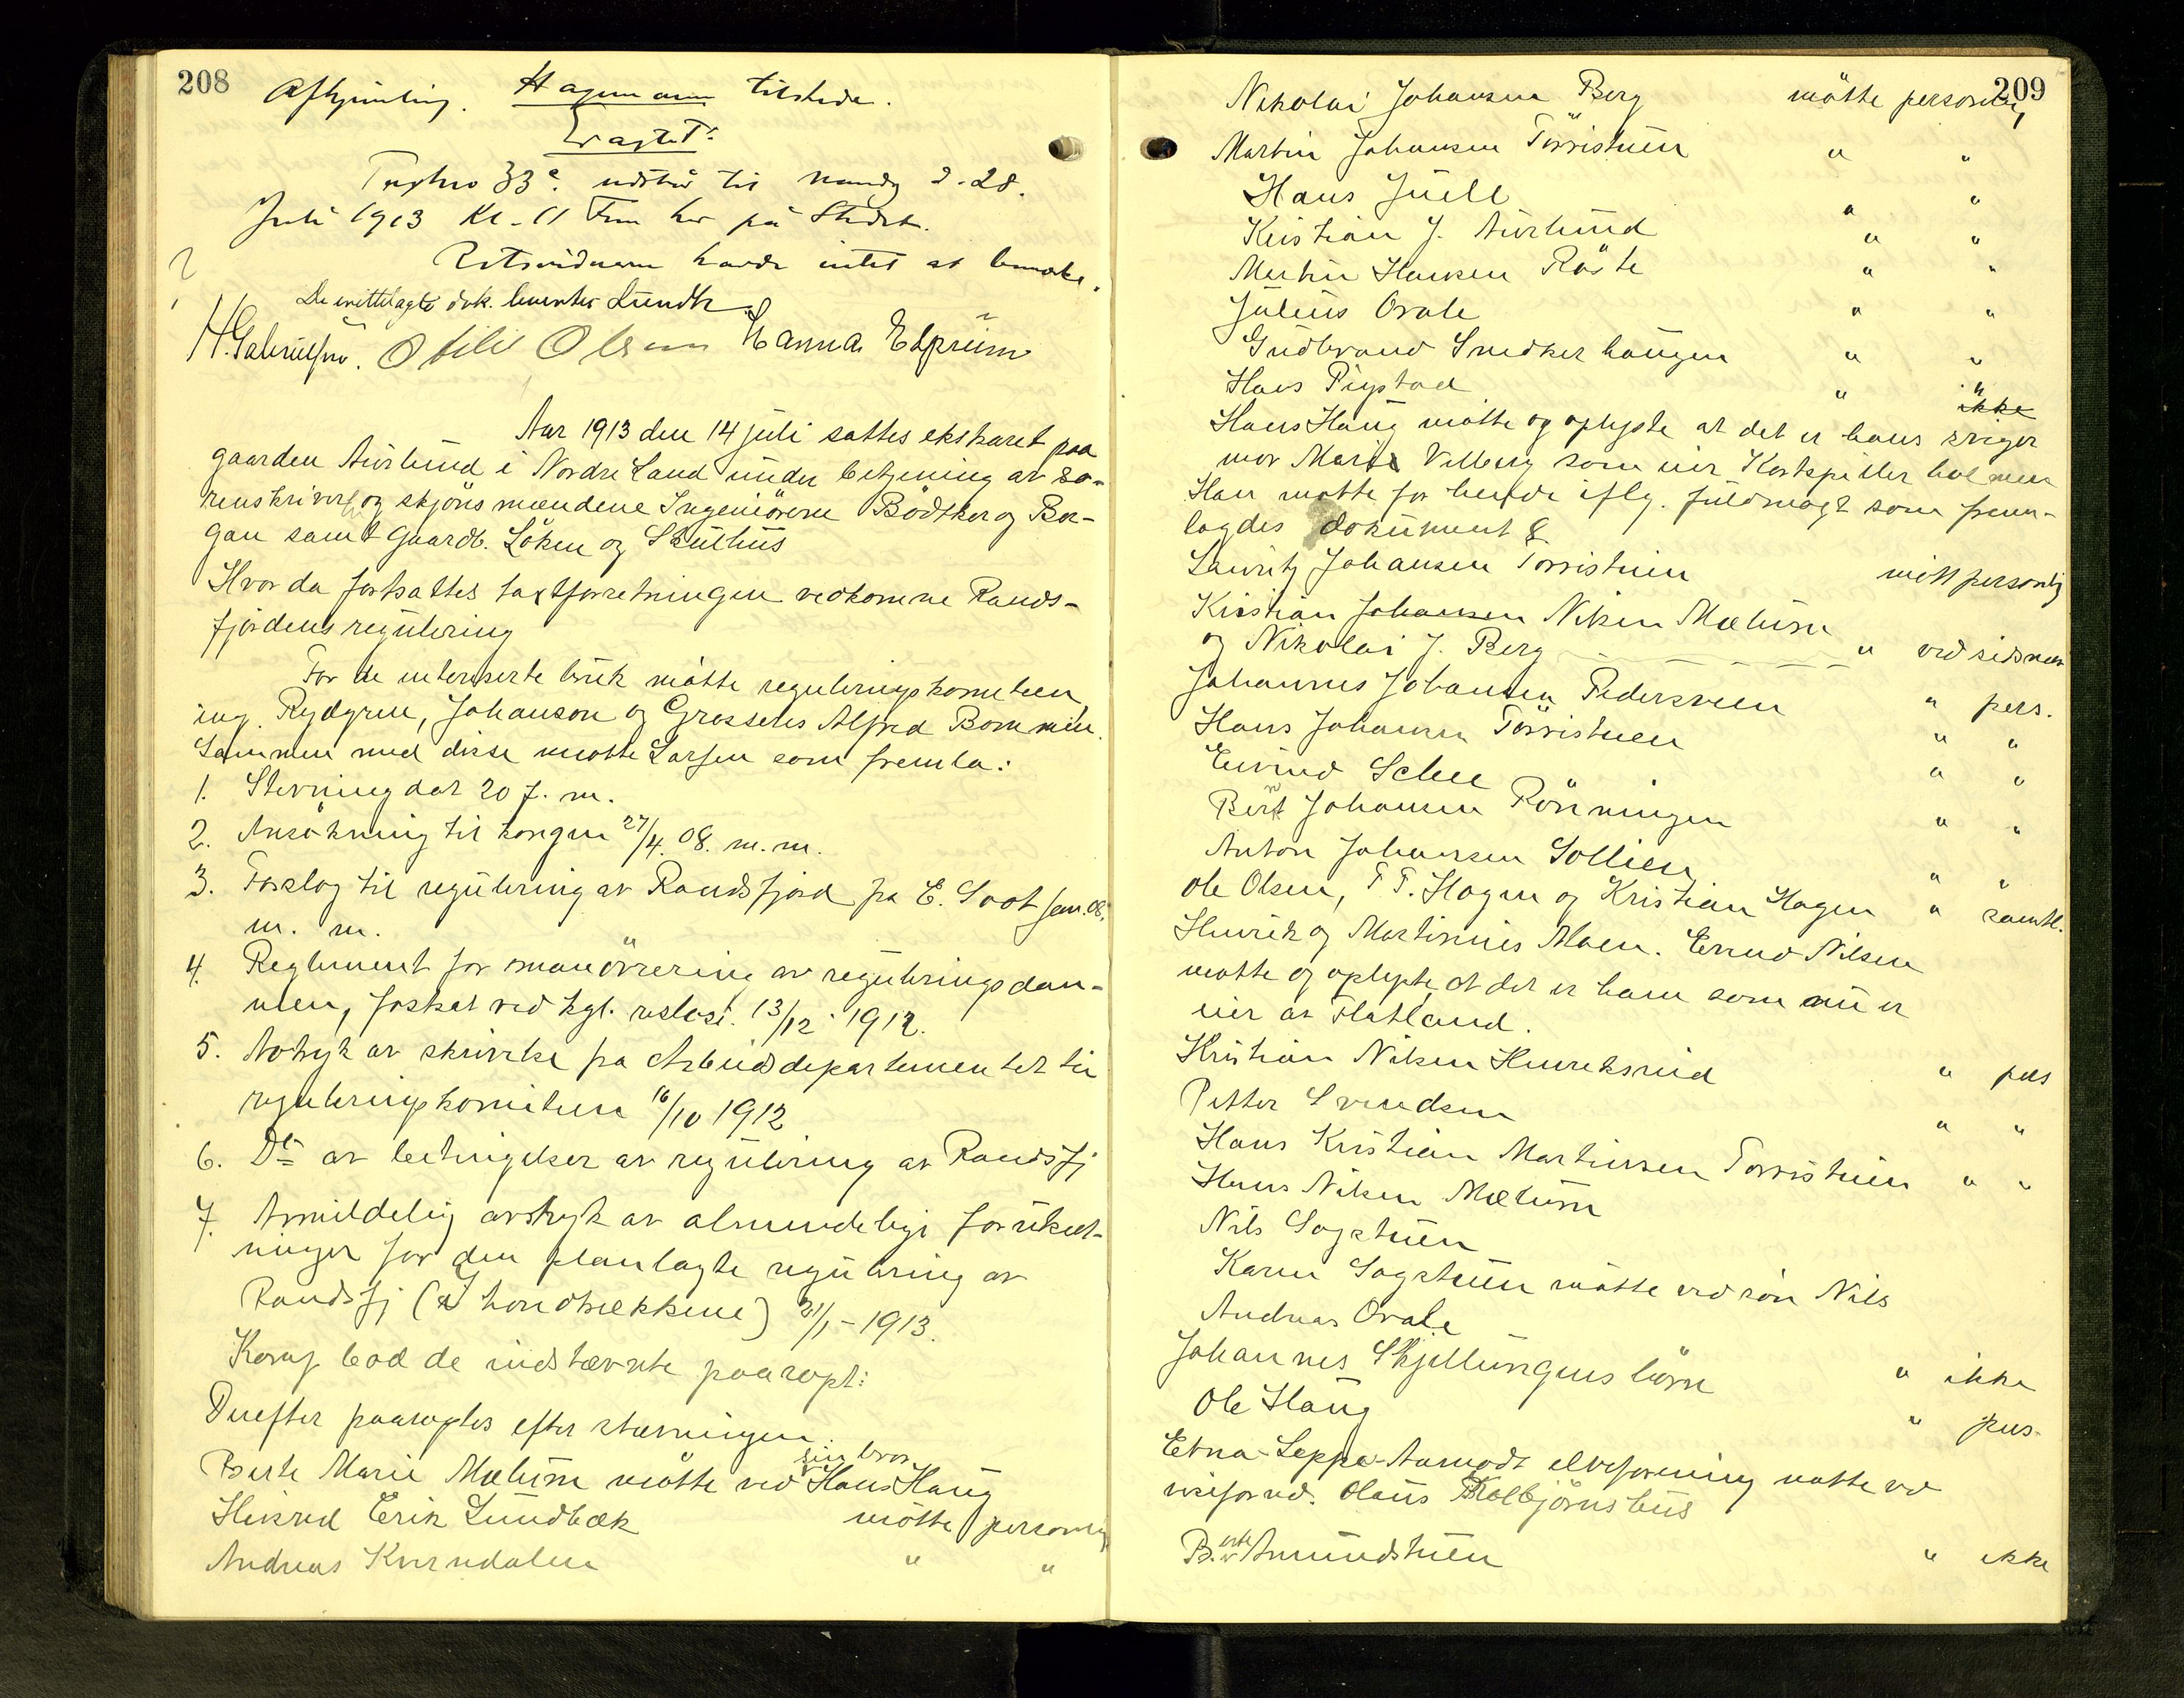 208
Hagemann tilstede.
Juli 1913 Kl. 11 Fm her på Stedet.
Retsvidnerne havde intet at bemærke.
Otilie Olsen Hanna Elsrüm
Aar 1913 den 14 juli sattes ekstraret paa
gaarden Aürlünd i Nordre Land ünder betjening av so-
renskriveren og skjönsmændene Ingeniörerne Bödtker og Ber-
gan samt Gaardb. Löken og Sküthüs
Hvor da fortsattes taxtforretningen vedkomne Rands-
fjordens regülering
For de interesserte brük mötte reguleringskomiteen,
ing. Rydgren, Johanson og Grosseres Alfred Bommen.
Sammen med disse mötte Larsen som fremla:
1. Stevning dat 20 f. m.
2. Ansökning til kongen 27/4. 08. m. m.
3. Forslag til regülering av Randsfjord fra E. Soot jan. 08.
m. m.
4. Reglement for manövrering av regüleringsdam-
men, fastsat ved kgl. resl. 13/12 1912.
5. Avtryk av skrivelse fra Arbeidsdepartementet til
reguleringskomiteen 16/10 1912
6. Do av betingelser av regülering av Randsfj
7. Avmeldelig avtryk av almindelige forütset-
ninger for den planlagte regülering av
Randsfj (I hovedtrækkene) 21/1 - 1913.
Komp. bad de indstævnte paaropt:
Derefter paaroptes efter stævningen.
sin bror
Berte Marie Mælüm mötte ved Hans Haüg
Erik Lündbæk mötte personlig
Andreas Kverndalen " "
209
Nikolai Johansen Berg mötte personlig
Martin Johansen Törristüen " "
Hans Jüell " "
Kristian J. Aürlünd " "
Martin Hansen Röste " "
Jülius Ovale " "
Güdbrand Snedkerhaügen " "
Hans " ikke "
Hans Haüg mötte og oplyste at det er hans sviger
mor Marte Velberg som eier
Han mötte for hende iflg. füldmagt som frem-
lagdes dokument 8
Laüritz Johansen Torristüen mött personlig
Kristian Johansen Nilsen Mælüm
og Nikolai J. Berg " ved sidsnev
Johannes Johansen Pedersveen " pers.
Hans Johansen Törristuen " "
Eivind Schee " "
Bernt Johansen Rönningen " "
Anton Johansen Sollien " "
Ole Olsen, T T. Hagen og Kristian Hagen " samtl.
Henrik og Martinius Moen. Nilsen
mötte og oplyste at det er ham som nü er
eier av Flatland.
Kristian Nilsen Henriksrud " pers
Petter Svendsen " "
Hans Kristian Martinsen Torristüen " "
Hans Nilsen Mælüm
Nils Sagstüen
Karen Sagstüen mötte ved sön Nils
Andreas Ovale
Johannes Skjellüngens börn " ikke
Ole Haüg " pers.
Etna-Leppa-Aamodt elveforening mötte ved
viseformd. Olaüs Kolbjörnshüs
B. Amündstüen " ikke